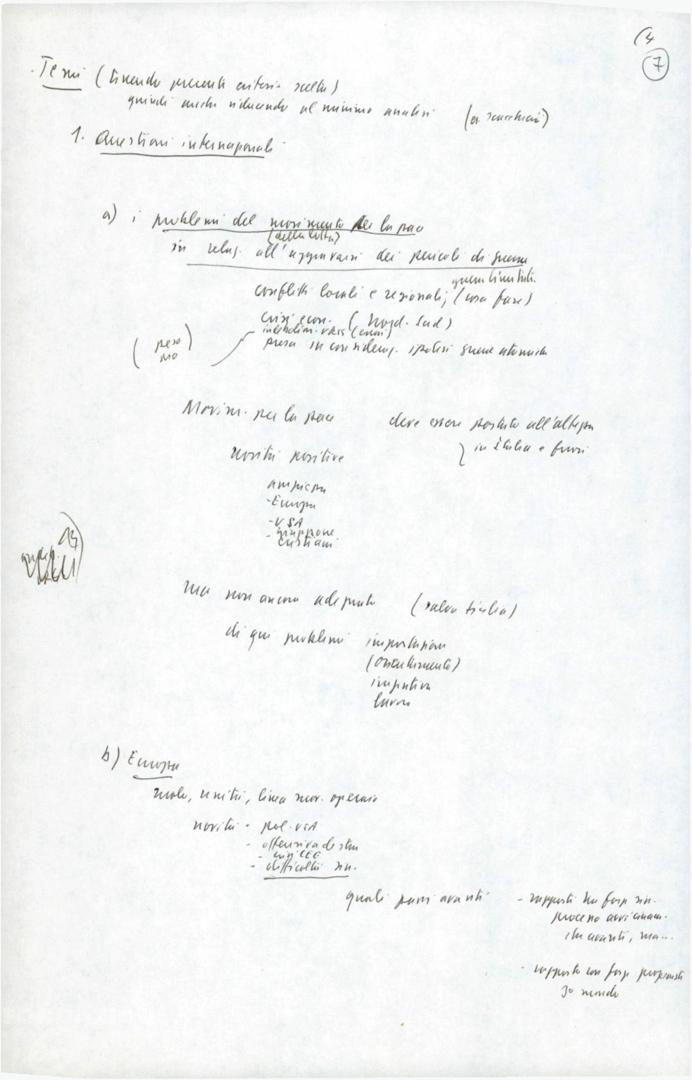 (4
7
- Temi (tenendo presenti criteri scelta)
quindi anche riducendo al minimo analisi
1. Questioni internazionali
a) i problemi del movimento per la pace
(della lotta)
in relaz. all'aggravarsi dei pericoli di guerra
conflitti locali e regionali; (cosa fare)
crisi econ. (Nord-Sud)
presa in consideraz. ipotesi guerre atomiche
Movim. per la pace deve essere portato all'altezza
in Italia e fuori
novità positive
ampiezza
- Europa
- USA
- Giappone
- cristiani
ma non ancora adeguato (salvo Sicilia)
di qui problemi impostazione
(orientamento)
iniziativa
lavoro
b) Europa
ruolo, unità, linea mov. operaio
novità - pol. USA
- offensiva destra
- crisi CEE
- difficoltà sin.
quali passi avanti - rapporti tra forze sin.
processo avvicinam.
in avanti, ma...
- rapporto con forze progressiste
3o mondo